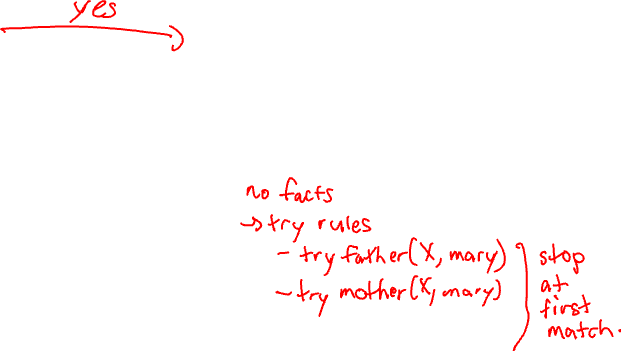 yes
no facts
→ try rules
- try father(X, mary)
- try mother(X, mary)
stop
at
first
match.